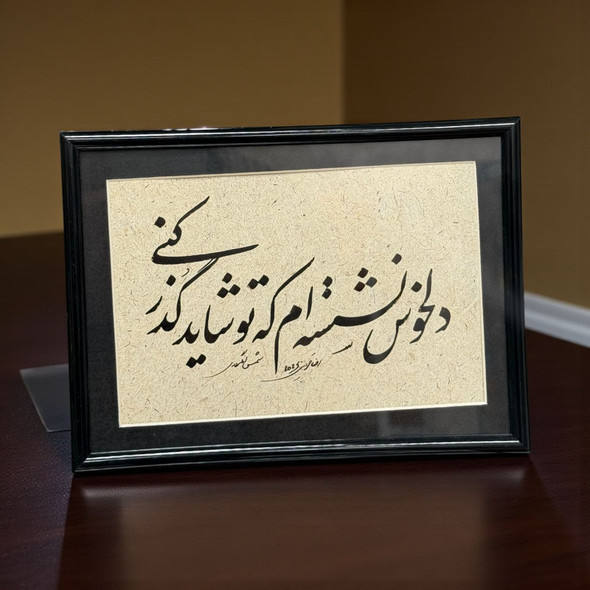 دلخوش نشسته ام که تو شاید گذر کنی
شمس لنگرودی